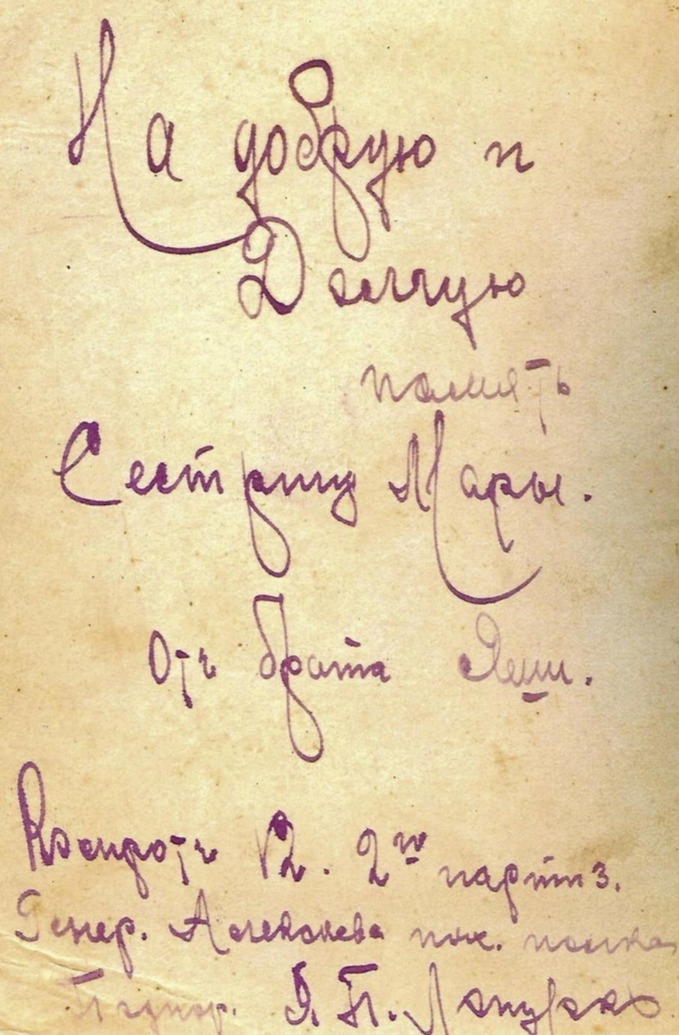 На добрую и
Долгую
память
Сестрицы Мары.
Отъ брата Яши.
12. 2го партиз.
Генер. Алексѣева пѣх. полка
Я. П.